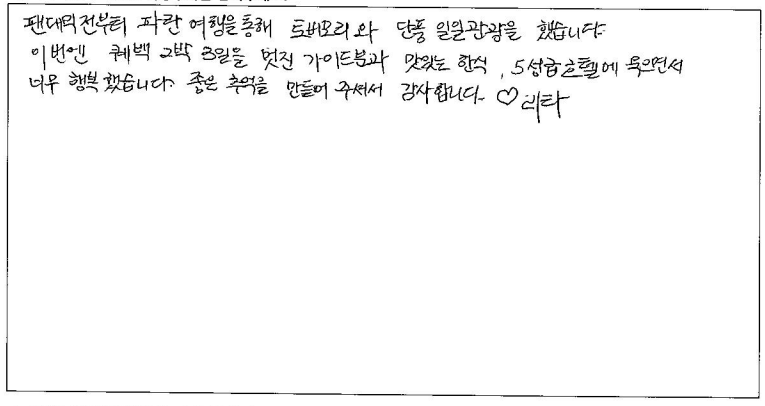 팬데믹전부터 파란 여행을 통해 토버모리와 단풍 일일관광을 했습니다.
이번엔 퀘백 2박 3일을 멋진 가이드분과 맛있는 한식, 5성급호텔에 묵으면서
너무 행복했습니다. 좋은 추억을 만들어 주셔서 감사합니다. ♡ 리타